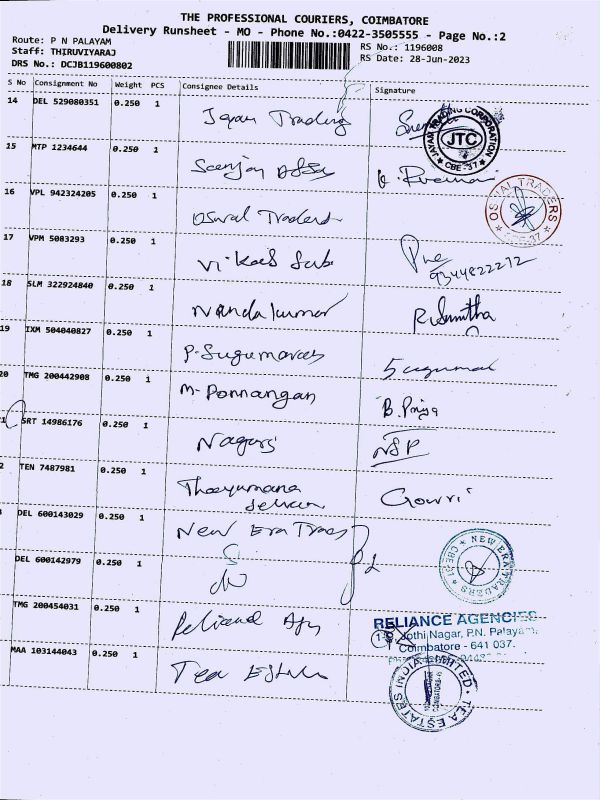 THE PROFESSIONAL COURIERS, COIMBATORE
Delivery Runsheet - MO - Phone No.:0422-3505555 - Page No.:2
Route: P N PALAYAM
Staff: THIRUVIYARAJ
DRS No.: DCJB119600802
RS No.: 1196008
RS Date: 28-Jun-2023
S No Consignment No Weight PCS Consignee Details Signature
14 DEL 529080351 0.250 1
Jeyan Trading
JAYAN TRADING CORPORATION
JTC
CBE-37
15 MTP 1234644 0.250 1
16 VPL 942324205 0.250 1
Oswal Traders
OSWAL TRADERS
CBE-37
17 VPM 5083293 0.250 1
Vikas Sub
9344822212
18 SLM 322924840 0.250 1
Nandakumar
19 IXM 504040827 0.250 1
P. Sugumaran
Sugumar
20 TMG 200442908 0.250 1
M. Ponnangan
B. Priya
21 SRT 14986176 0.250 1
Nagaraj
NSP
2 TEN 7487981 0.250 1
Thayumana
Selvan
Gowri
DEL 600143029 0.250 1
New Era Traders
NEW ERA TRADERS
DEL 600142979 0.250 1
TMG 200454031 0.250 1
Reliance Agy
RELIANCE AGENCIES
Jothi Nagar, P.N. Palayam,
Coimbatore - 641 037.
MAA 103144043 0.250 1
Tea Estates
TEA ESTATES INDIA LIMITED